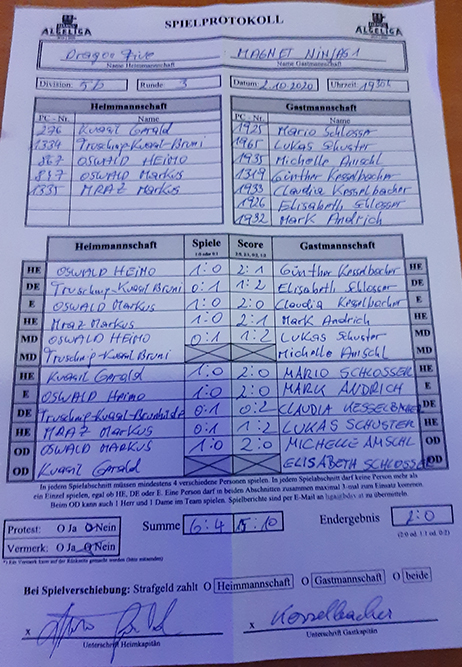 SPIELPROTOKOLL
Dragon Five MAGNET NINJAS 1
Name Heimmannschaft Name Gastmannschaft
Division: 5b Runde: 3 Datum 2.10.2020 Uhrzeit 1930h
Heimmannschaft Gastmannschaft
PC - Nr. Name PC - Nr. Name
276 Kuassl Gerald 1925 Mario Schlosser
1334 Truschnig-Kuassl-Bruni 1965 Lukas Schuster
867 OSWALD HEIMO 1935 Michelle Amschl
847 OSWALD Markus 1319 Günther Kesselbacher
1335 MRAZ Markus 1933 Claudia Kesselbacher
1926 Elisabeth Schlosser
1932 Mark Andrich
Heimmannschaft Spiele Score Gastmannschaft
HE OSWALD HEIMO 1:0 2:1 Günther Kesselbacher HE
DE Truschnig-Kuassl Bruni 0:1 1:2 Elisabeth Schlosser DE
E OSWALD Markus 1:0 2:0 Claudia Kesselbacher E
HE Mraz Markus 1:0 2:1 Mark Andrich HE
MD OSWALD HEIMO 0:1 1:2 Lukas Schuster MD
MD Truschnig-Kuassl Bruni Michelle Amschl MD
HE Kuassl Gerald 1:0 2:0 MARIO SCHLOSSER HE
E OSWALD Heimo 1:0 2:0 MARK ANDRICH E
DE Truschnig-Kuassl-Brunhilde 0:1 0:2 CLAUDIA KESSELBACHER DE
HE MRAZ MARKUS 0:1 1:2 LUKAS SCHUSTER HE
OD OSWALD MARKUS 1:0 2:0 MICHELLE AMSCHL OD
OD Kuassl Gerald ELISABETH SCHLOSSER OD
In jedem Spielabschnitt müssen mindestens 4 verschiedene Personen spielen. In jedem Spielabschnitt darf keine Person mehr als
ein Einzel spielen, egal ob HE, DE oder E. Eine Person darf in beiden Abschnitten zusammen maximal 3-mal zum Einsatz kommen.
Beim OD kann auch 1 Herr und 1 Dame im Team spielen. Spielberichte sind per E-Mail an zu übermitteln.
Protest: O Ja O Nein Summe 6:4 15:10 Endergebnis 2:0
Vermerk: O Ja O Nein (2:0 od. 1:1 od. 0:2)
*) Ein Vermerk kann auf der Rückseite gemacht werden (bitte ankreuzen)
Bei Spielverschiebung: Strafgeld zahlt O Heimmannschaft O Gastmannschaft O beide
x x Kesselbacher
Unterschrift Heimkapitän Unterschrift Gastkapitän